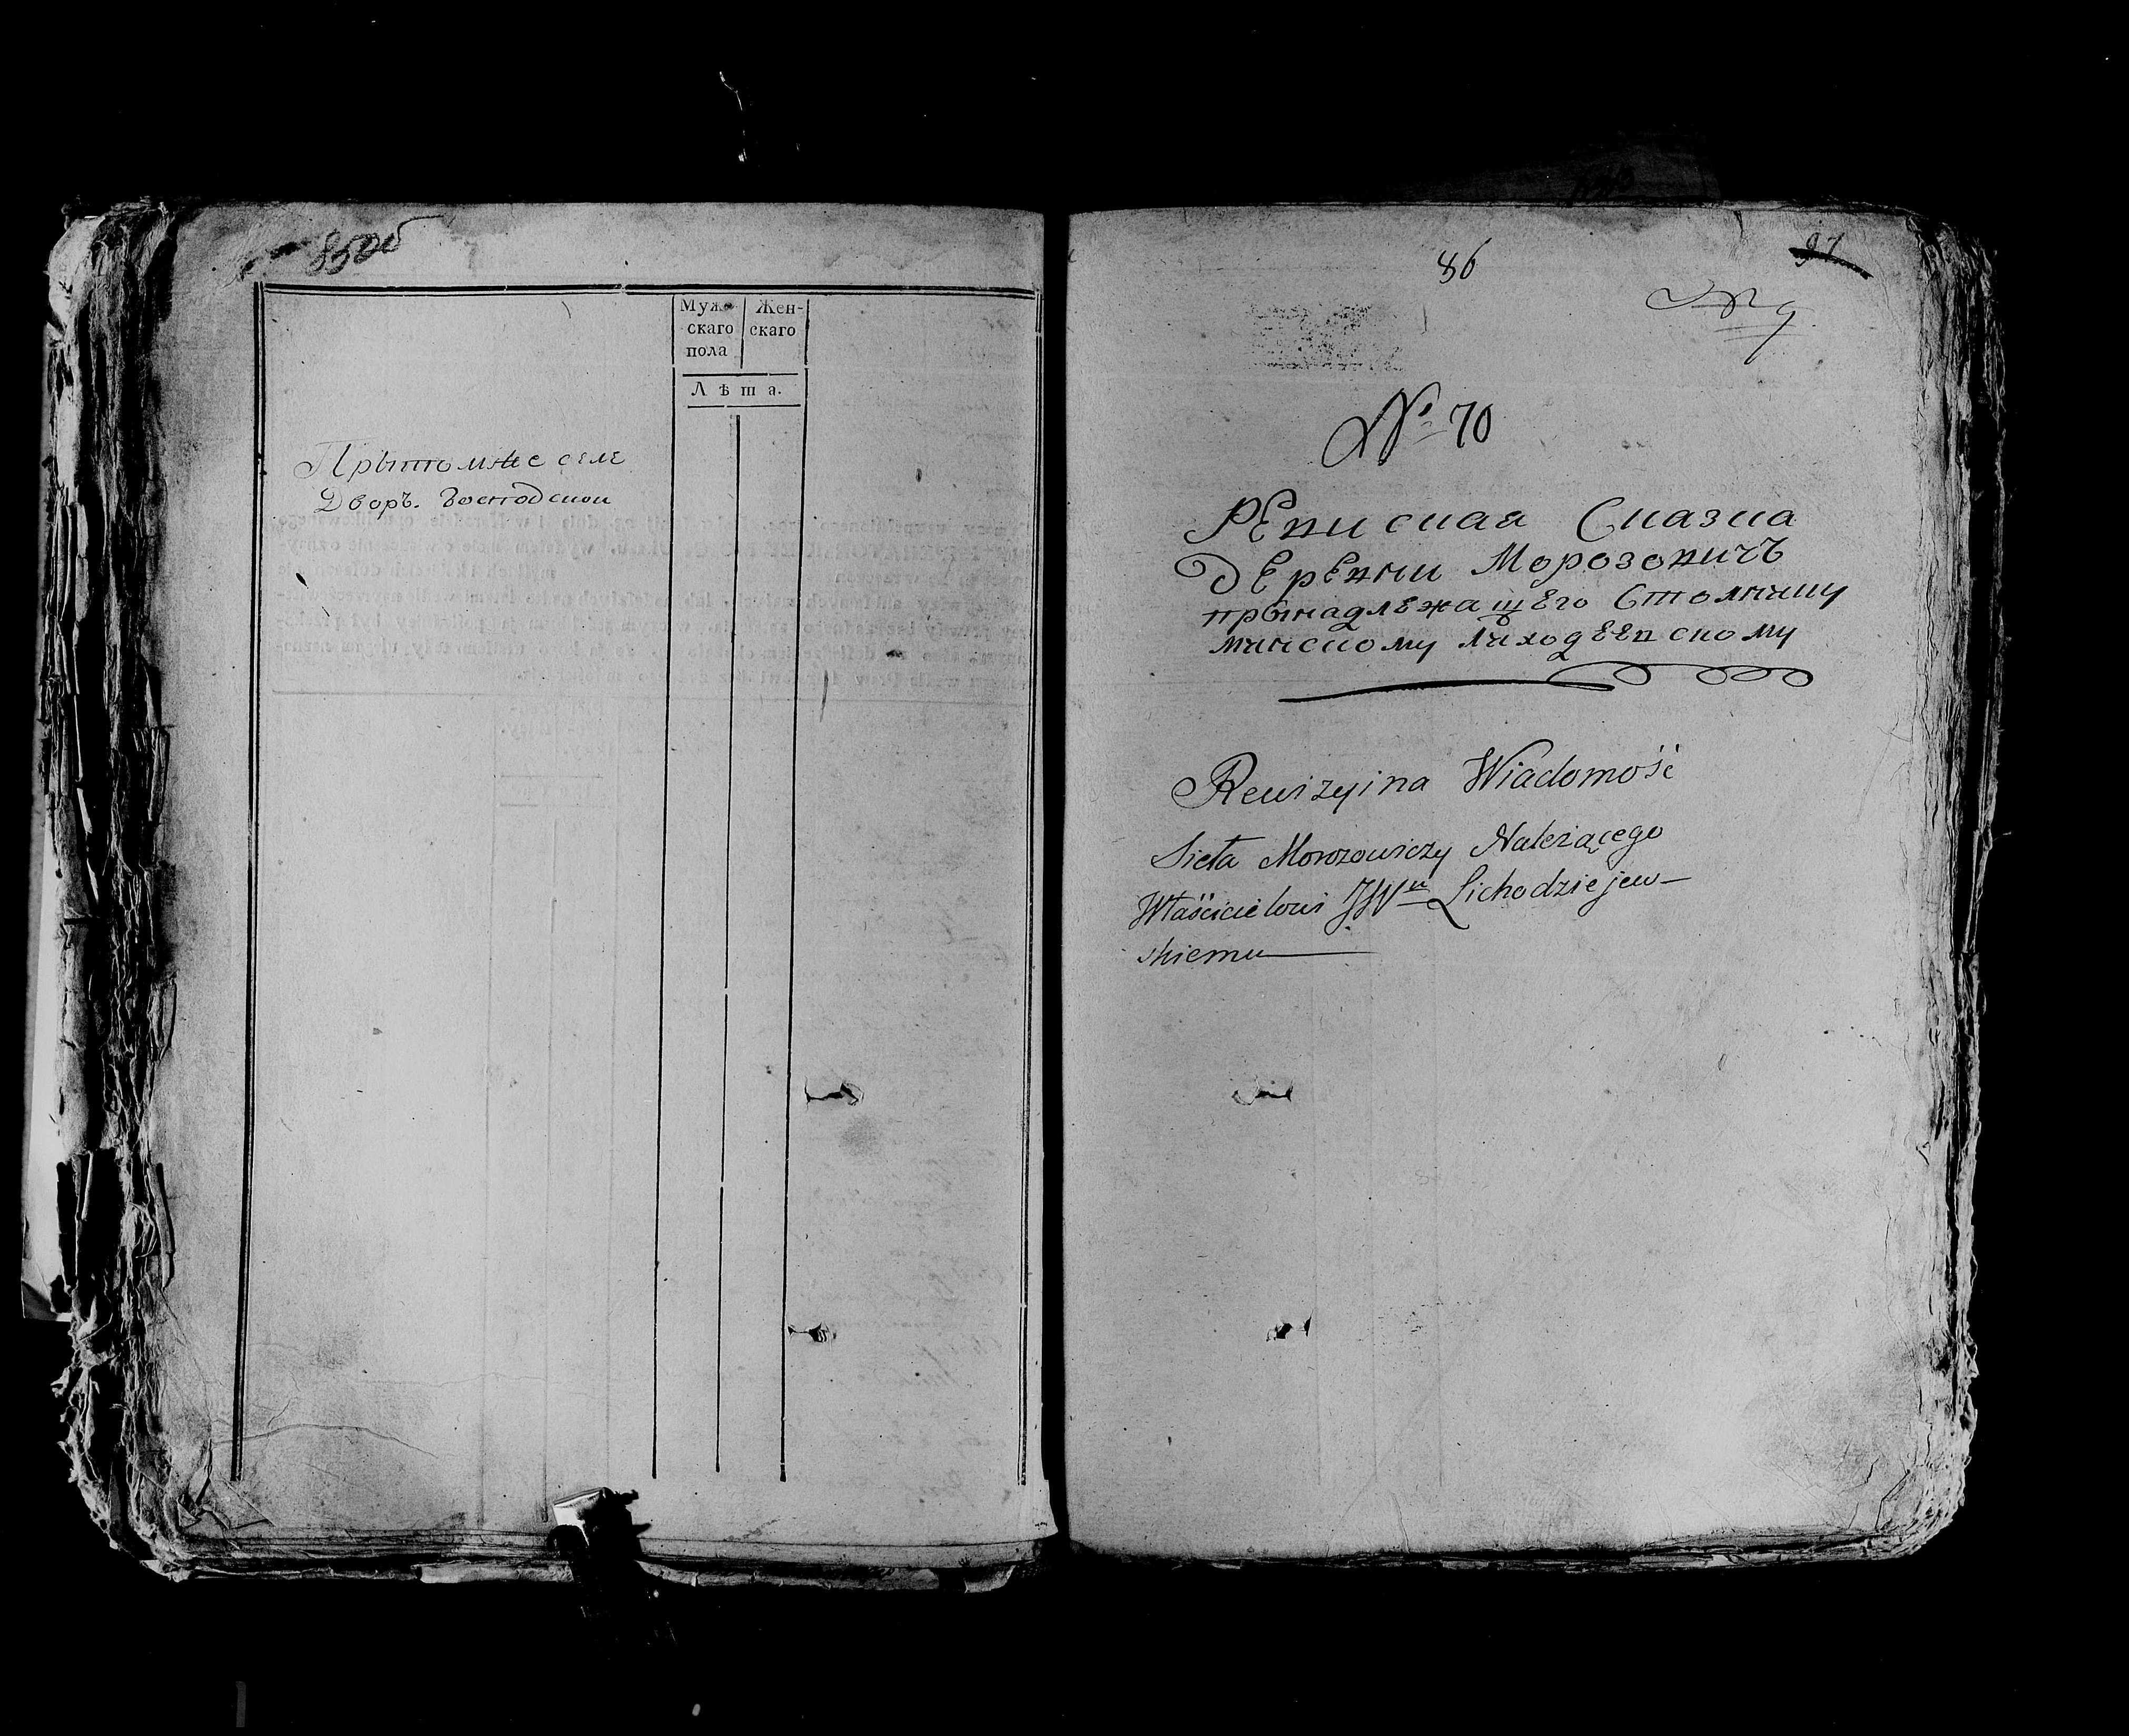 85об
Муж-
скаго
пола
Жен-
скаго
Лѣта.
Прытомже селе
Дворъ. Господскои
86
97
№ 9
№ 70
Ревиская Сказка
Деревни Морозовичъ
прынадлежащего Столнику
минскому Лиходеевскому
Rewizyina Wiadomość
Sieła Morozowiczy Należącego
Właścicielowi JW Lichodziejew-
skiemu